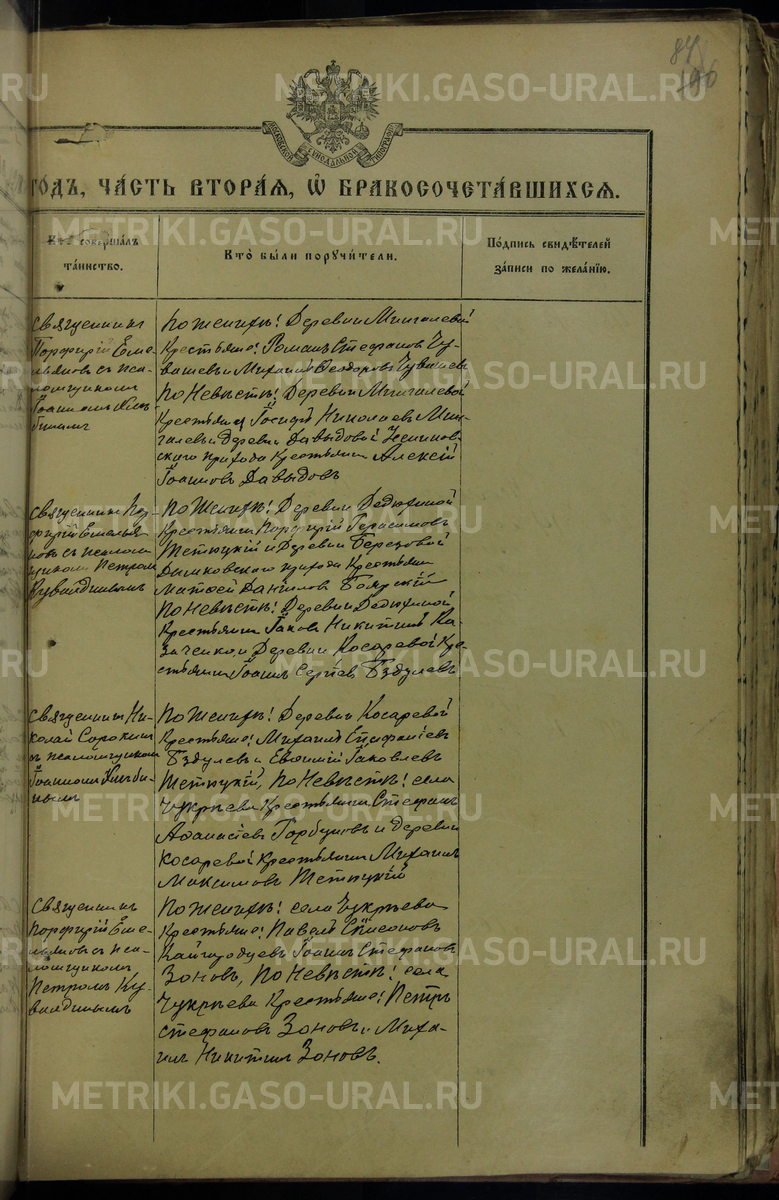 84
196
МОСКОВСКОЙ СѴНОДАЛЬНОЙ ТИПОГРАФІИ
ГОДЪ, ЧАСТЬ ВТОРАЯ, Ѡ БРАКОСОЧЕТАВШИХСЯ.
Кто совершалъ
таинство.
Кто были поручители.
Подпись свидѣтелей
записи по желанію.
Священникъ
Порфирій Еме-
льяновъ съ пса-
ломщикомъ
Іоанномъ
По женихѣ: Деревни Мингалевой
Крестьяне: Романъ Стефановъ Чу-
вашевъ и Михаилъ Ѳеодоровъ Чувашевъ
По Невѣстѣ: Деревни Мингалевой
Крестьянинъ Іосифъ Николаевъ Мин-
галевъ и Деревни Давыдовой
скаго прихода Крестьянинъ Алексій
Іоанновъ Давыдовъ
Священникъ Пор-
фирій Емелья-
новъ съ псалом-
щикомъ Петромъ
Кувайдинымъ
По Женихѣ: Деревни Дедюхиной
Крестьянинъ Порфирій Герасимовъ
Тетюцкій и Деревни Березовой
Дымковскаго прихода Крестьянинъ
Матѳей Даніиловъ Боярскій
По Невѣстѣ: Деревни Дедюхиной
Крестьянинъ Іаковъ Никитинъ Ка-
заченко и Деревни Косаревой Кре-
стьянинъ Іоаннъ Сергіевъ Бздулевъ
Священникъ Ни-
колай Сорокинъ
съ псаломщикомъ
Іоанномъ
По Женихѣ: Деревни Косаревой
Крестьяне: Михаилъ Епифаніевъ
Бздулевъ и Евѳимій Іаковлевъ
Тетюцкій, По Невѣстѣ: села
Чукрѣева Крестьянинъ Стефанъ
Аѳанасіевъ Горбуновъ и Деревни
Косаревой Крестьянинъ Михаилъ
Максимовъ Тетюцкій
Священникъ
Порфирій Еме-
льяновъ съ пса-
ломщикомъ
Петромъ Ку-
вайдинымъ
По Женихѣ: села Чукрѣева
Крестьяне: Павелъ
Кайгородцевъ Іоаннъ Стефановъ
Зоновъ, По Невѣстѣ: села
Чукрѣева Крестьяне: Петръ
Стефановъ Зоновъ и Миха-
илъ Никитинъ Зоновъ.
METRIKI.GASO-URAL.RU